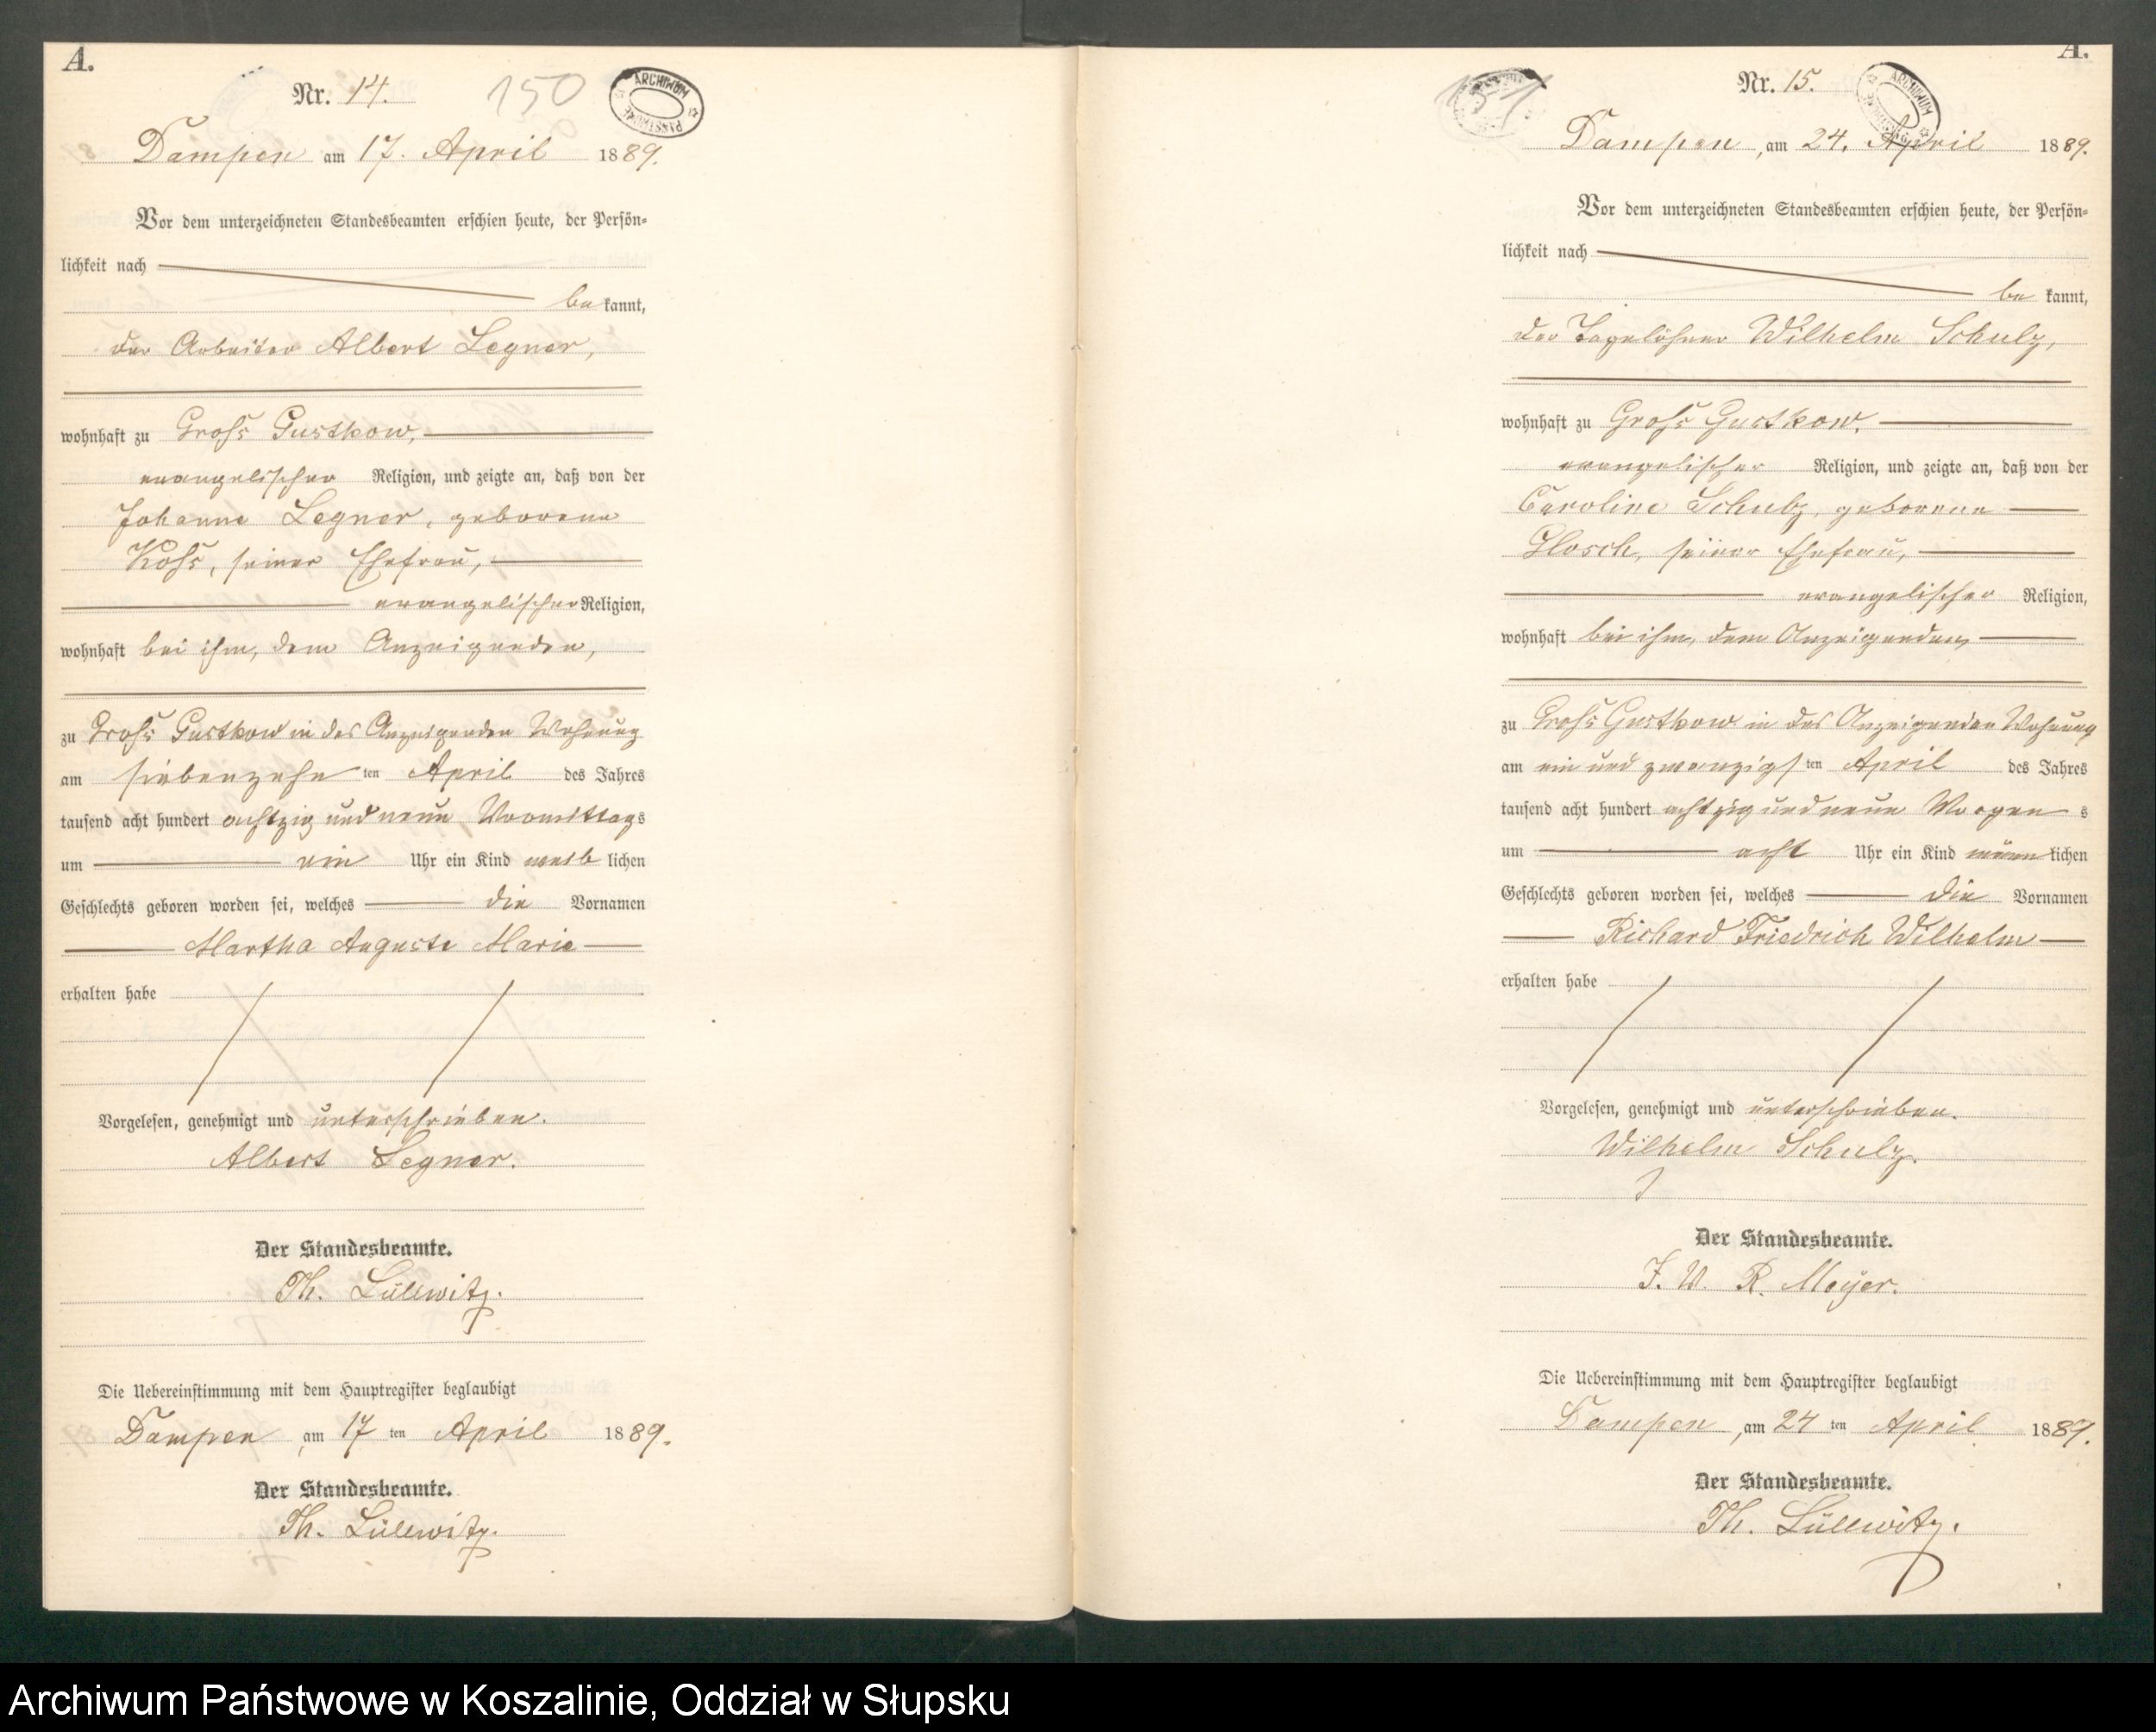 A.
Nr. 14.
150
ARCHIWUM
PAŃSTWOWE
Dampen am 17. April 1889.
Vor dem unterzeichneten Standesbeamten erschien heute, der Persön-
lichkeit nach
bekannt,
der Arbeiter Albert Legner,
wohnhaft zu Groß Gustkow,
evangelischer Religion, und zeigte an, daß von der
Johanne Legner, geborene
Koß, seiner Ehefrau,
evangelischer Religion,
wohnhaft bei ihm, dem Anzeigenden,
zu Groß Gustkow in des Anzeigenden Wohnung
am siebenzehn ten April des Jahres
tausend acht hundert achtzig und neun Vormittags
um ein Uhr ein Kind weiblichen
Geschlechts geboren worden sei, welches die Vornamen
Martha Auguste Marie
erhalten habe
Vorgelesen, genehmigt und unterschrieben.
Albert Legner.
Der Standesbeamte.
Th. Lüllwitz.
Die Uebereinstimmung mit dem Hauptregister beglaubigt
Dampen, am 17 ten April 1889.
Der Standesbeamte.
Th. Lüllwitz.
A.
Nr. 15.
ARCHIWUM
Dampen, am 24. April 1889.
Vor dem unterzeichneten Standesbeamten erschien heute, der Persön-
lichkeit nach
bekannt,
der Tagelöhner Wilhelm Schulz,
wohnhaft zu Groß Gustkow,
evangelischer Religion, und zeigte an, daß von der
Caroline Schulz, geborene
Glosch, seiner Ehefrau,
evangelischer Religion,
wohnhaft bei ihm, dem Anzeigenden,
zu Groß Gustkow in des Anzeigenden Wohnung
am ein und zwanzigs ten April des Jahres
tausend acht hundert achtzig und neun Morgens
um acht Uhr ein Kind männlichen
Geschlechts geboren worden sei, welches die Vornamen
Richard Friedrich Wilhelm
erhalten habe
Vorgelesen, genehmigt und unterschrieben.
Wilhelm Schulz.
Der Standesbeamte.
J. V. R. Meyer.
Die Uebereinstimmung mit dem Hauptregister beglaubigt
Dampen, am 24 ten April 1889.
Der Standesbeamte.
Th. Lüllwitz.
Archiwum Państwowe w Koszalinie, Oddział w Słupsku